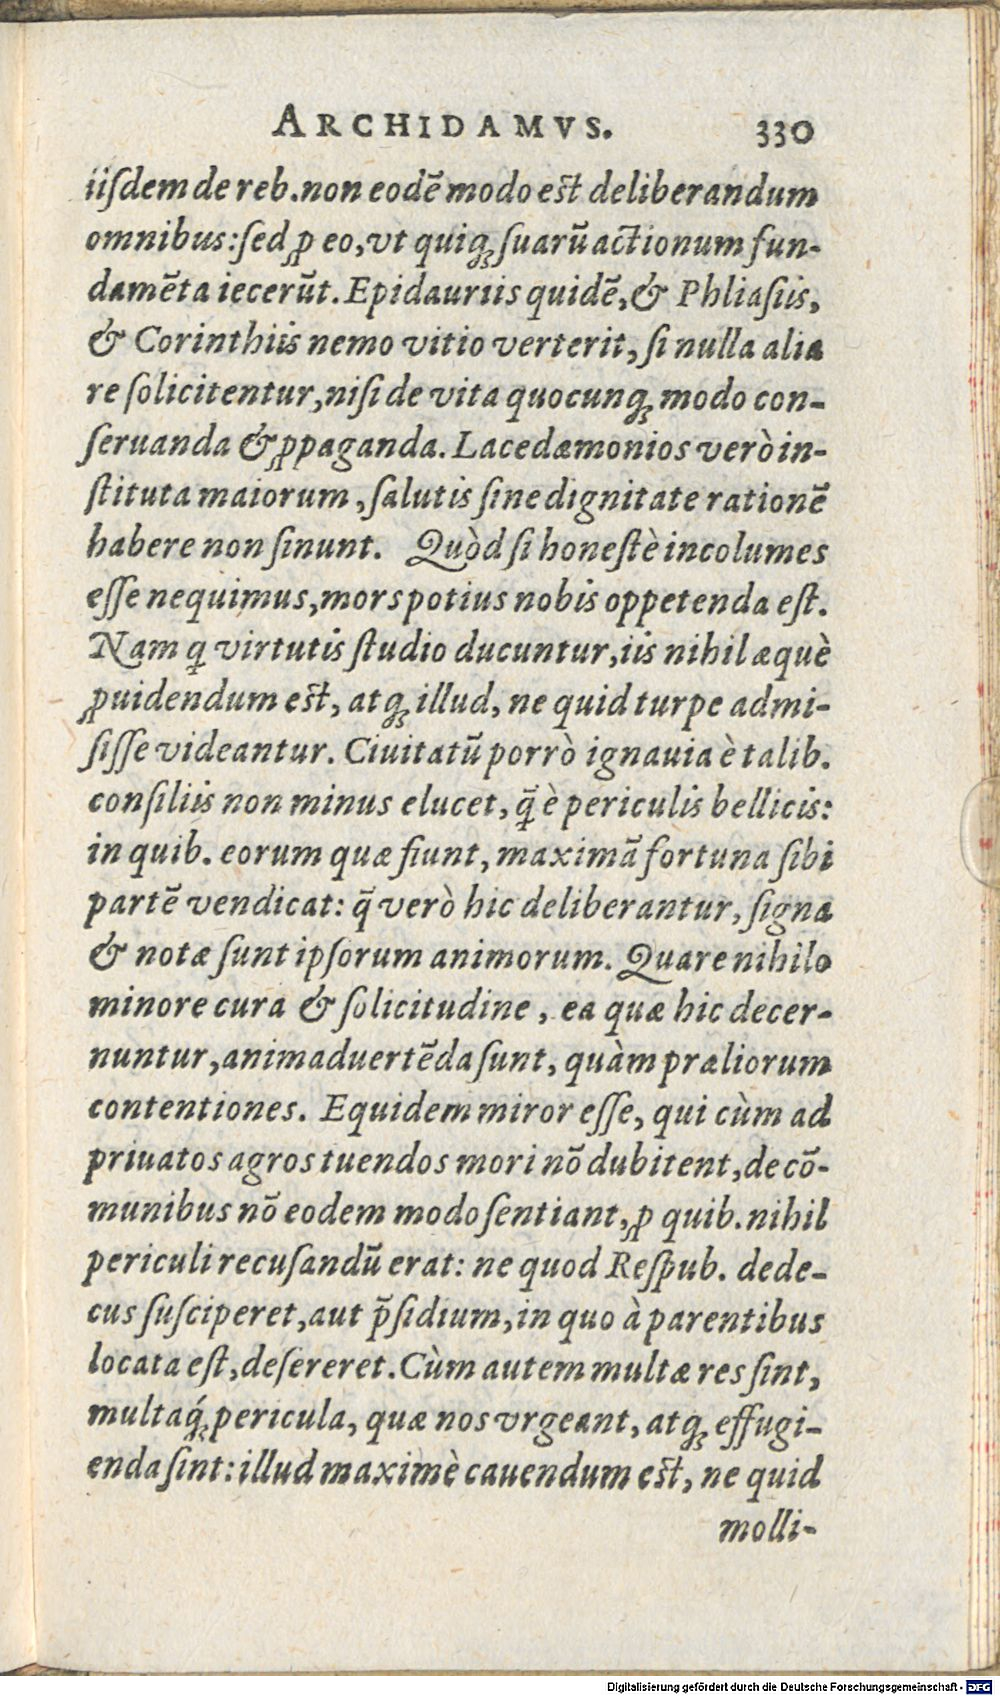 ARCHIDAMVS. 330
iiſdem de reb. non eodē modo eſt deliberandum
omnibus: ſed ꝓ eo, vt quiqꝫ ſuarū actionum fun-
damēta iecerūt. Epidauriis quidē, & Phliaſiis,
& Corinthiis nemo vitio verterit, ſi nulla alia
re ſolicitentur, niſi de vita quocunqꝫ modo con-
ſeruanda & ꝓpaganda. Lacedæmonios verò in-
ſtituta maiorum, ſalutis ſine dignitate rationē
habere non ſinunt. Quòd ſi honeſtè incolumes
eſſe nequimus, mors potius nobis oppetenda eſt.
Nam ꝗ virtutis ſtudio ducuntur, iis nihil æquè
ꝓuidendum eſt, atqꝫ illud, ne quid turpe admi-
ſiſſe videantur. Ciuitatū porrò ignauia è talib.
conſiliis non minus elucet, ꝗ̄ è periculis bellicis:
in quib. eorum quæ fiunt, maximā fortuna ſibi
partē vendicat: q̄ verò hic deliberantur, ſigna
& notæ ſunt ipſorum animorum. Quare nihilo
minore cura & ſolicitudine, ea quæ hic decer-
nuntur, animaduertēda ſunt, quàm præliorum
contentiones. Equidem miror eſſe, qui cùm ad
priuatos agros tuendos mori nō dubitent, de cō-
munibus nō eodem modo ſentiant, ꝓ quib. nihil
periculi recuſandū erat: ne quod Reſpub. dede-
cus ſuſciperet, aut p̄ſidium, in quo à parentibus
locata eſt, deſereret. Cùm autem multæ res ſint,
multaq́ꝫ pericula, quæ nos vrgeant, atqꝫ effugi-
enda ſint: illud maximè cauendum eſt, ne quid
molli-
Digitalisierung gefördert durch die Deutsche Forschungsgemeinschaft - DFG